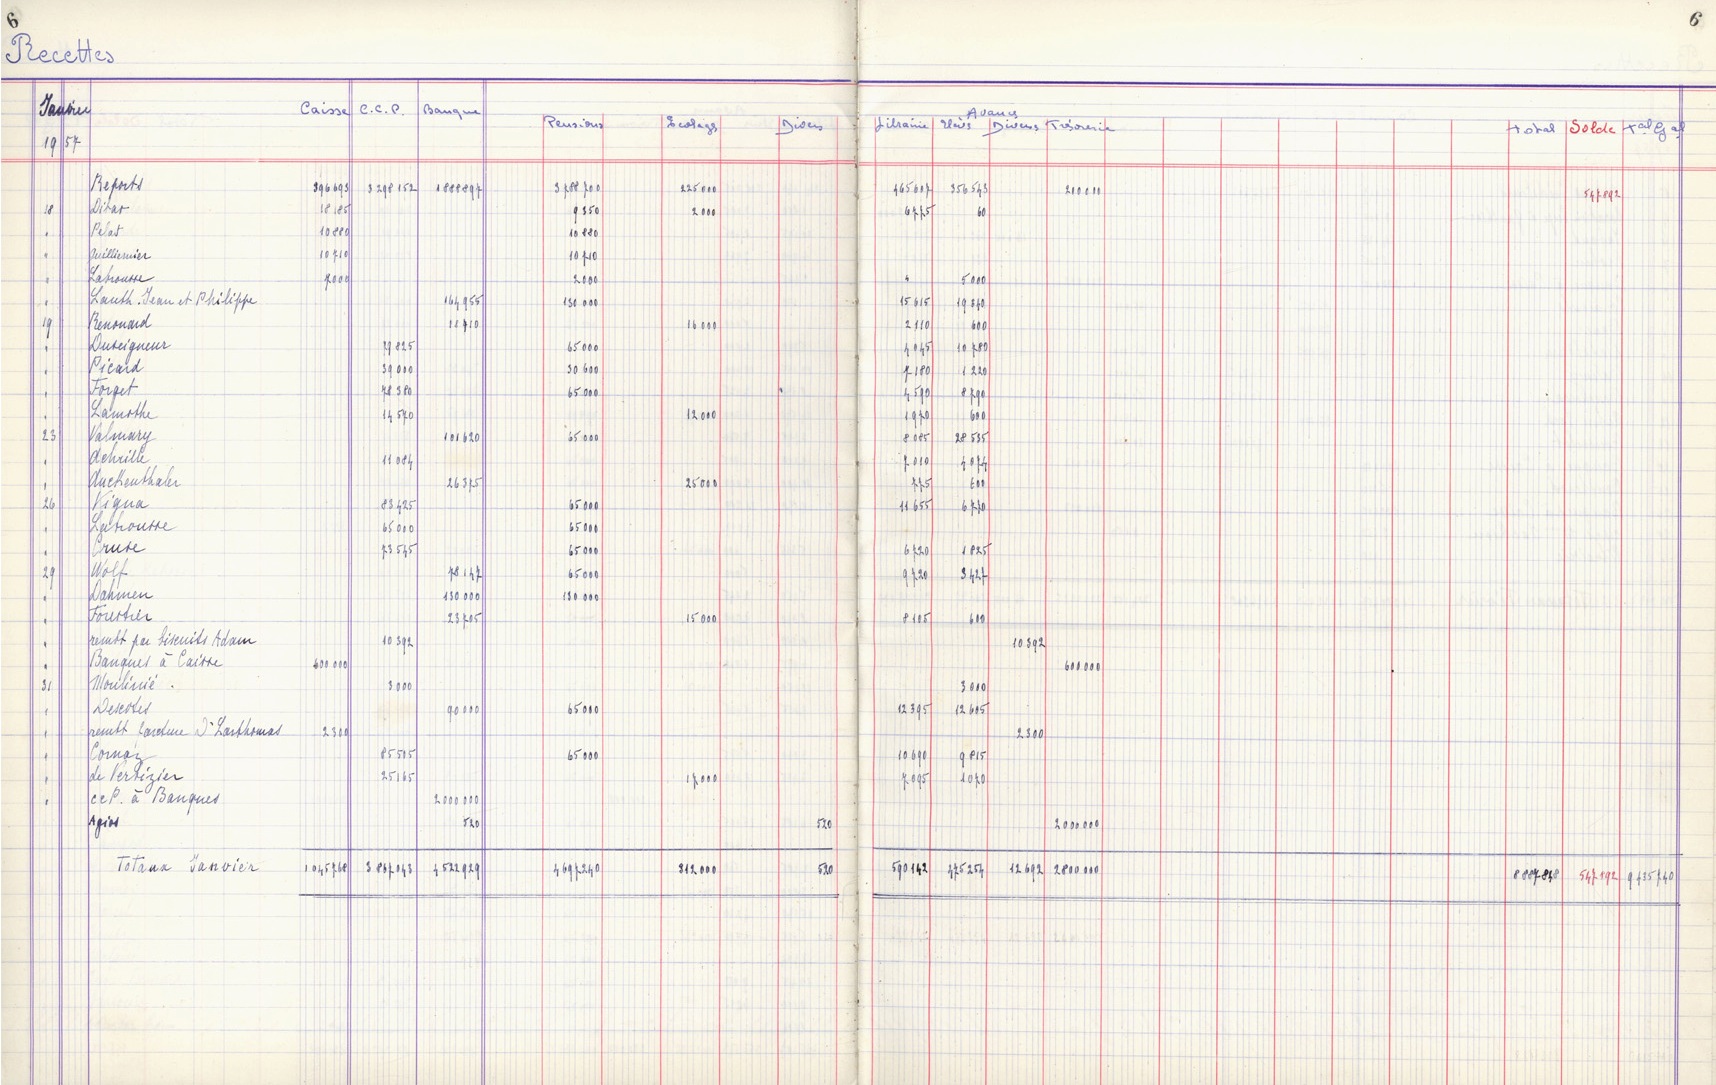 6
6
Recettes
Janvier Caisse C.C.P. Banque Avances
Pensions Ecolages Divers Librairie Elèves Divers Trésorerie Total Solde
19 57
Reports 396693 3298152 1888897 3788700 225000 465607 356543 547892
18 18185 9350 2000 6775 60
" Pelat 10880 10880
" 10710 10710
" Labrousse 7000 2000 5000
" Lauth Jean et Philippe 164955 130000 15615 19340
19 Renouard 16000 2110 600
" Duseigneur 79825 65000 4045 10780
" Picard 39000 30600 7180 1220
" Forget 78380 65000 4590 8790
" Lamothe 14570 12000 1970 600
23 Valmary 101620 65000 8085 28535
" 11084 7010 4074
" Auckenthaler 26375 25000 775 600
26 Vigna 83425 65000 11655 6770
" Labrousse 65000 65000
" Cruse 73545 65000 6720 1825
29 Wolf 78147 65000 9720 3427
" Dahmen 130000 130000
" Forestier 23705 15000 8105 600
" rembt par biscuits Adam 10392 10392
" Banques à Caisse 600000 600000
31 Moulinié . 3000 3000
" Descotes 90000 65000 12395 12605
" rembt Dr Lasthomas 2300 2300
" Cornaz 85505 65000 10690 9815
" de Verbizier 25165 17000 7095 1070
" ccP. à Banques 2000000
Agios 520 520 2000000
Totaux Janvier 1045768 3867043 4522929 4697240 312000 520 590142 475254 12692 2800000 547892 9435740